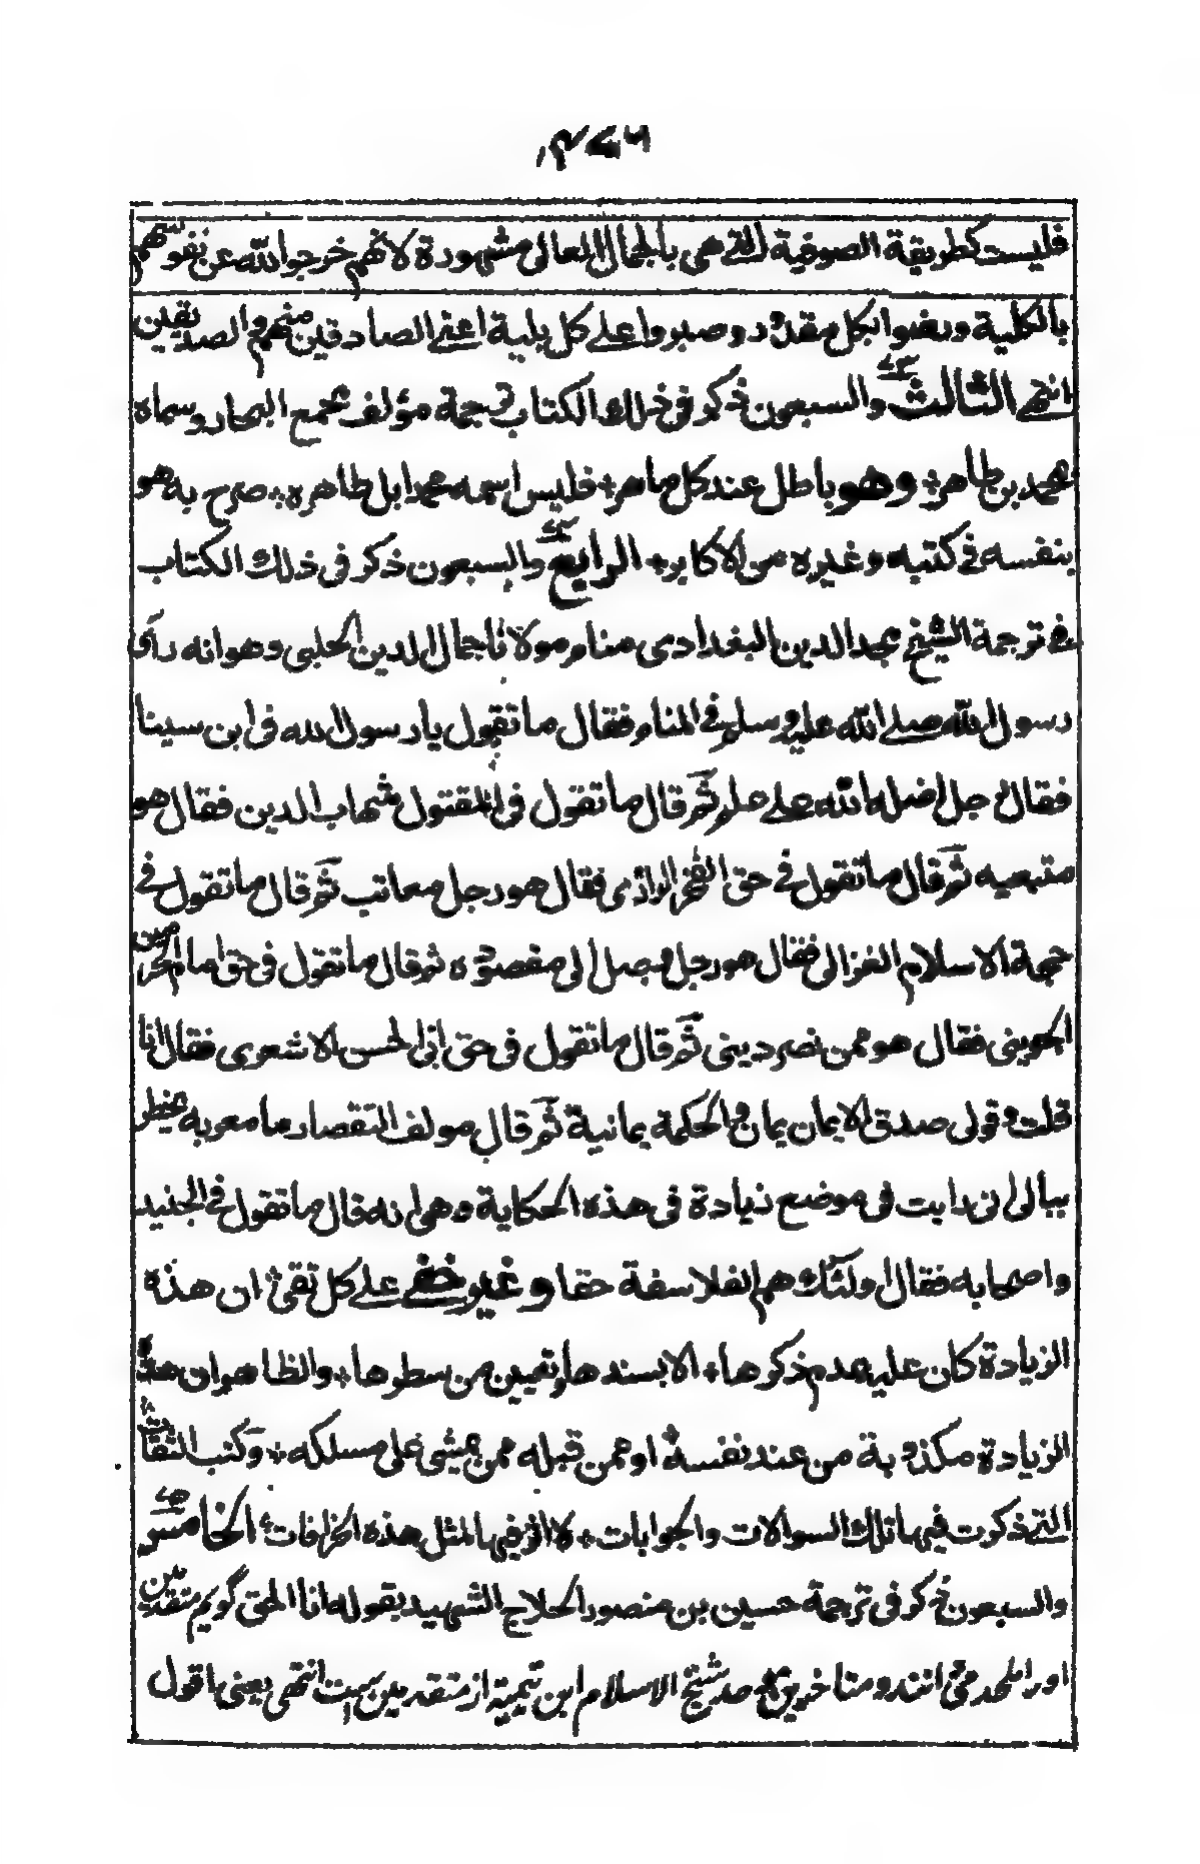 فليست كطريقة الصوفية التي هي بالجمال المعالى مشهودة لانهم خرجوا لله عن نفوسهم
بالكلية ورضوا بكل مقدور وصبروا على كل بلية اعنى الصادقين منهم والصديقين
انتهى الثالث والسبعون ذكر فى ذلك الكتاب ترجمة مؤلف مجمع البحار وسماه
محمد بن طاهر؛ وهو باطل عند كل ماهر؛ فليس اسمه محمدا بل طاهره؛ صرح به هو
بنفسه فى كتبه وغيره من الاكابر؛ الرابع والسبعون ذكر فى ذلك الكتاب
فى ترجمة الشيخ مجد الدين البغدادى منام مولانا جمال الدين الحلبى وهو انه رأى
رسول الله صلى الله عليه وسلم فى المنام فقال ما تقول يا رسول الله فى ابن سينا
فقال رجل اضله الله على علم ثم قال ما تقول فى المقتول شهاب الدين فقال هو
متبعيه ثم قال ما تقول فى حق الفخر الرازى فقال هو رجل معاتب ثم قال ما تقول فى
حجة الاسلام الغزالى فقال هو رجل وصل الى مقصوده ثم قال ما تقول فى حق امام الحرمين
الجوينى فقال هو ممن نصر دينى ثم قال ما تقول فى حق ابى الحسن الاشعرى فقال انا
قلت وقولى صدق الايمان يمان والحكمة يمانية ثم قال مولف التقصار ما معربه يخطر
ببالى انى رايت فى موضع زيادة فى هذه الحكاية وهى انه قال ما تقول فى الجنيد
واصحابه فقال اولئك هم الفلاسفة حقا وغير خفى على كل تقى ان هذه
الزيادة كان عليه عدم ذكرها؛ الا بسندها وتعيين من سطرها؛ والظاهر ان هذه
الزيادة مكذوبة من عند نفسه او ممن قبله ممن يمشى على مسلكه؛ وكتب الثقات
التى ذكرت فيها تلك السوالات والجوابات؛ لا اثر فيها لمثل هذه الخرافات؛ الخامس
والسبعون ذكر فى ترجمة حسين بن منصور الحلاج الشهيد بقوله انا الحق گويم متقدمين
اورا ملحد مى دانند و متاخرين موحد شيخ الاسلام ابن تيمية از متقدمين ست انتهى يعنى اقول